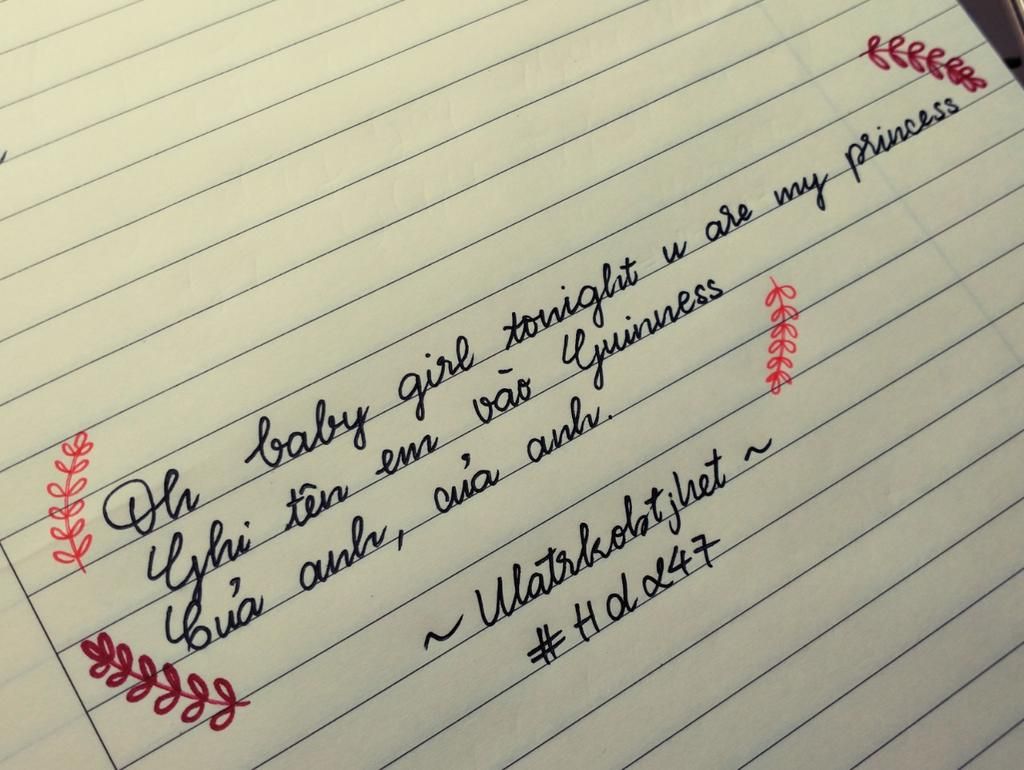 Oh baby girl tonight u are my princess
Ghi tên em vào Guinness
Của anh, của anh.
~ Matrkobtjhet ~
#Hdd247